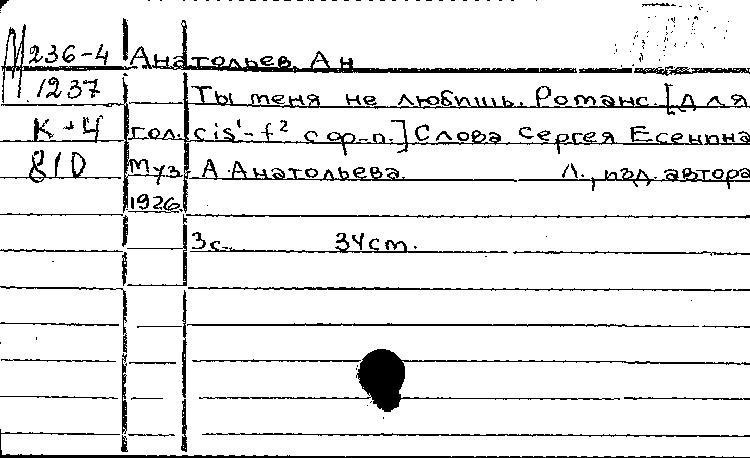 М 236-4 Анатольев, Ан
1237 Ты меня не любишь. Романс. [Для
К-4 гол. cis¹-f² с ф-п.] Слова Сергея Есенина
810 Муз. А. Анатольева. Л., изд. автора
1926.
3 с. 34 cm.